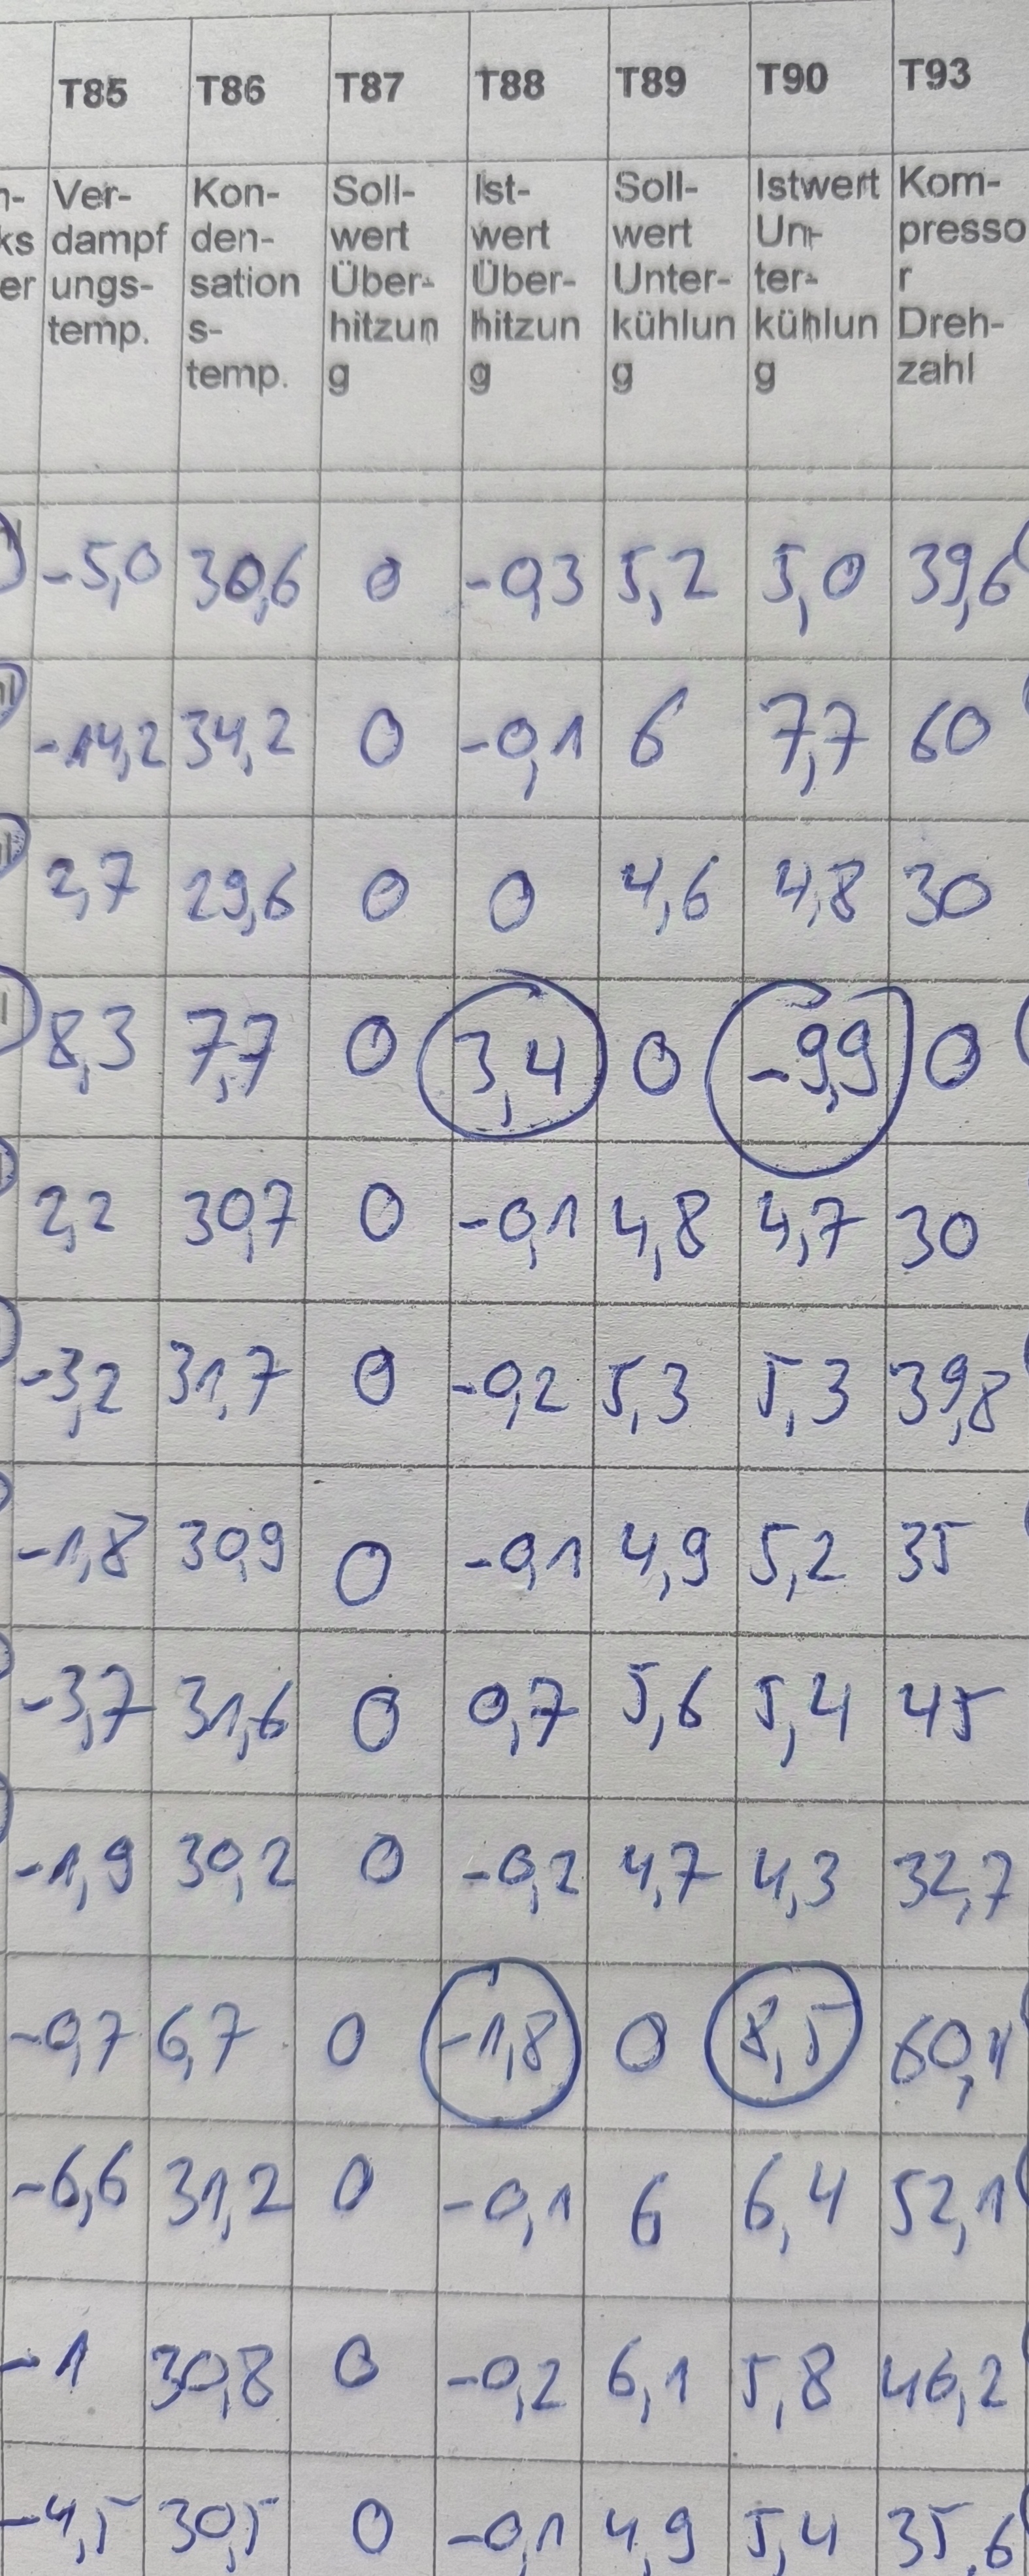 T85 T86 T87 T88 T89 T90 T93
n- Ver- Kon- Soll- Ist- Soll- Istwert Kom-
ks dampf den- wert wert wert Un- presso
er ungs- sation Über- Über- Unter- ter- r
temp. s- hitzun hitzun kühlun kühlun Dreh-
temp. g g g g zahl
-5,0 30,6 0 -0,3 5,2 5,0 39,6
-14,2 34,2 0 -0,1 6 7,7 60
2,7 29,6 0 0 4,6 4,8 30
8,3 7,7 0 3,4 0 -9,9 0
2,2 30,7 0 -0,1 4,8 4,7 30
-3,2 31,7 0 -0,2 5,3 5,3 39,8
-1,8 30,9 0 -0,1 4,9 5,2 35
-3,7 31,6 0 0,7 5,6 5,4 45
-1,9 30,2 0 -0,2 4,7 4,3 32,7
-0,7 6,7 0 -1,8 0 8,5 60,1
-6,6 31,2 0 -0,1 6 6,4 52,1
-1 30,8 0 -0,2 6,1 5,8 46,2
-4,5 30,5 0 -0,1 4,9 5,4 35,6